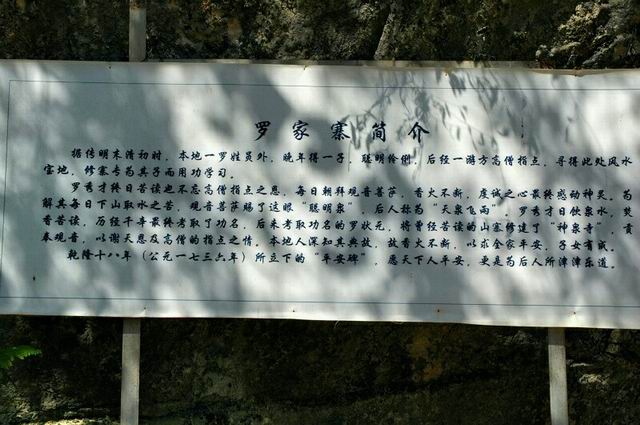 罗家寨简介
据传明末清初时，本地一罗姓员外，晚年得一子，聪明伶俐，后经一游方高僧指点，寻得此处风水
宝地，修寨专为其子而用功学习。
罗秀才终日苦读也不忘高僧指点之恩，每日朝拜观音菩萨，香火不断，虔诚之心最终感动神灵。为
解其每日下山取水之苦，观音菩萨赐了这眼“聪明泉”，后人称为“天泉飞雨”，罗秀才日饮泉水，焚
香苦读，历经千辛最终考取了功名，后来考取功名的罗状元，将曾经苦读的山寨修建了“神泉寺”，贡
奉观音，以谢天恩及高僧的指点之情。本地人深知其典故，故香火不断，以求全家平安，子女有成。
乾隆十八年（公元一七三六年）所立下的“平安碑”，愿天下人平安，更是为后人所津津乐道。